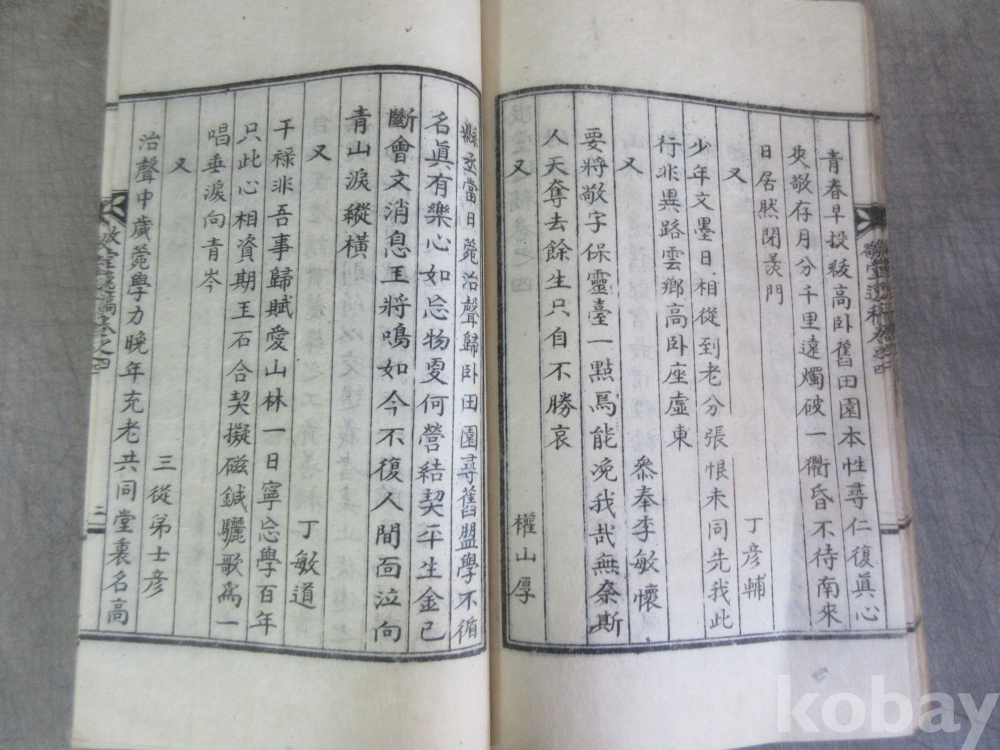 青春早投紱高卧舊田園本性尋仁復真心
夾敬存月分千里遠燭破一衢昏不待南來
日居然閉羨門
又 丁彦輔
少年文墨日相從到老分張恨未同先我此
行非異路雲鄉高卧座虛東
又 叅奉李敏懷
要將敬字保靈臺一點焉能浼我哉無柰斯
人天奪去餘生只自不勝哀
又 權山厚
縣丞當日苑治聲歸卧田園尋舊盟學不循
名眞有樂心如忘物更何營結契平生金已
斷會文消息玉將鳴如今不復人間面泣向
青山淚縱橫
又 丁敏道
干祿非吾事歸賦愛山林一日寧忘學百年
只此心相資期玉石合契擬磁鍼驪歌爲一
唱垂淚向青岑
又 三從弟士彦
治聲中歲苑學力晚年充老共同堂裏名高
敬堂逸稿卷之四
敬堂逸稿卷之四
二
kobay